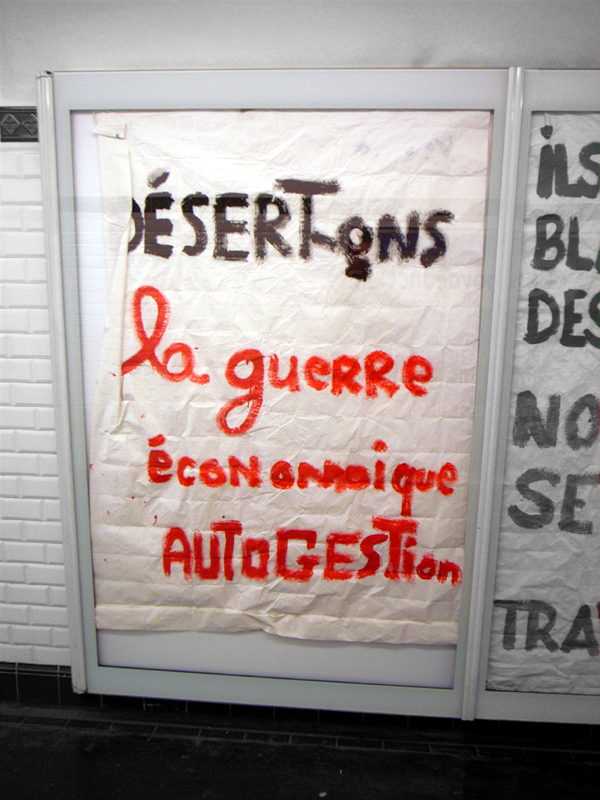 DÉSERTONS
la guerre
économique
AUTOGESTion
iLS
BLA
DES
NO
SE
TRA